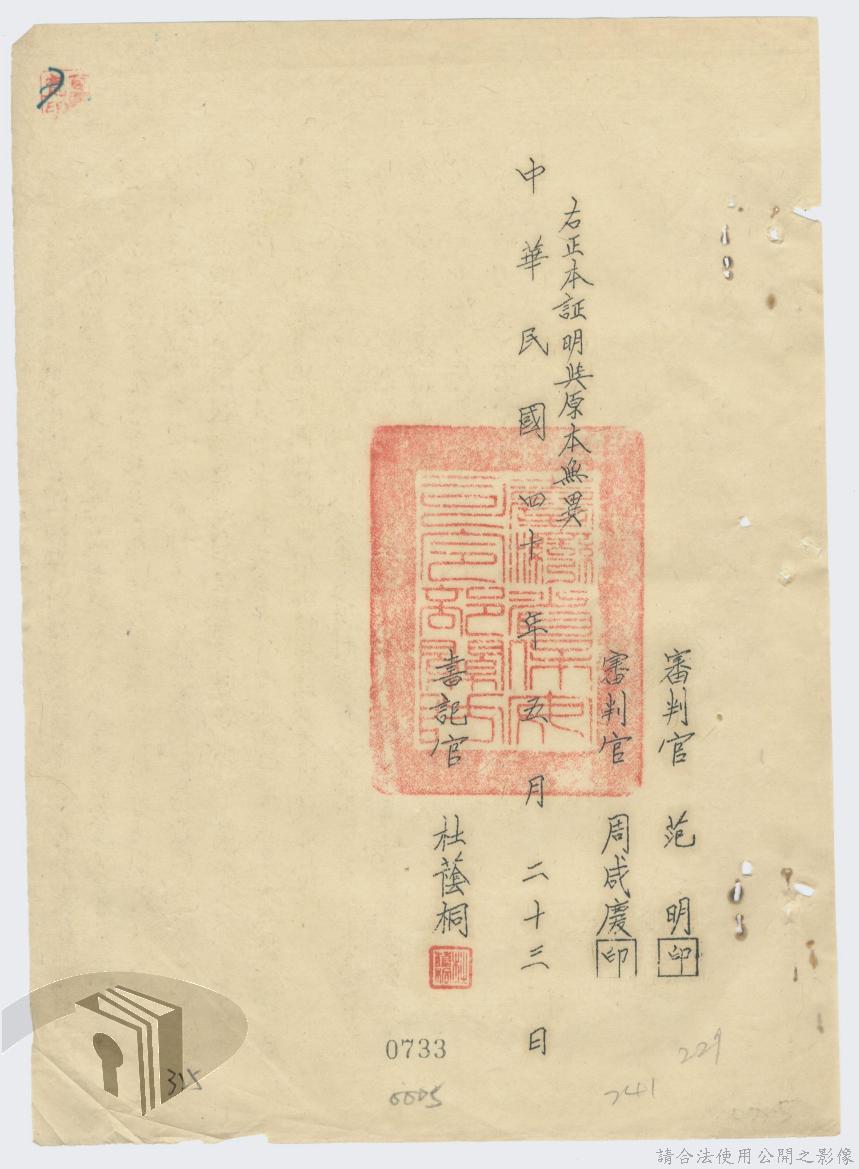 審判官 范 明 印
審判官 周咸慶 印
右正本証明與原本無異
中華民國四十年五月二十三日
書記官 杜蔭桐
臺灣省保安司令部關防
0733
0005
741
229
315
請合法使用公開之影像